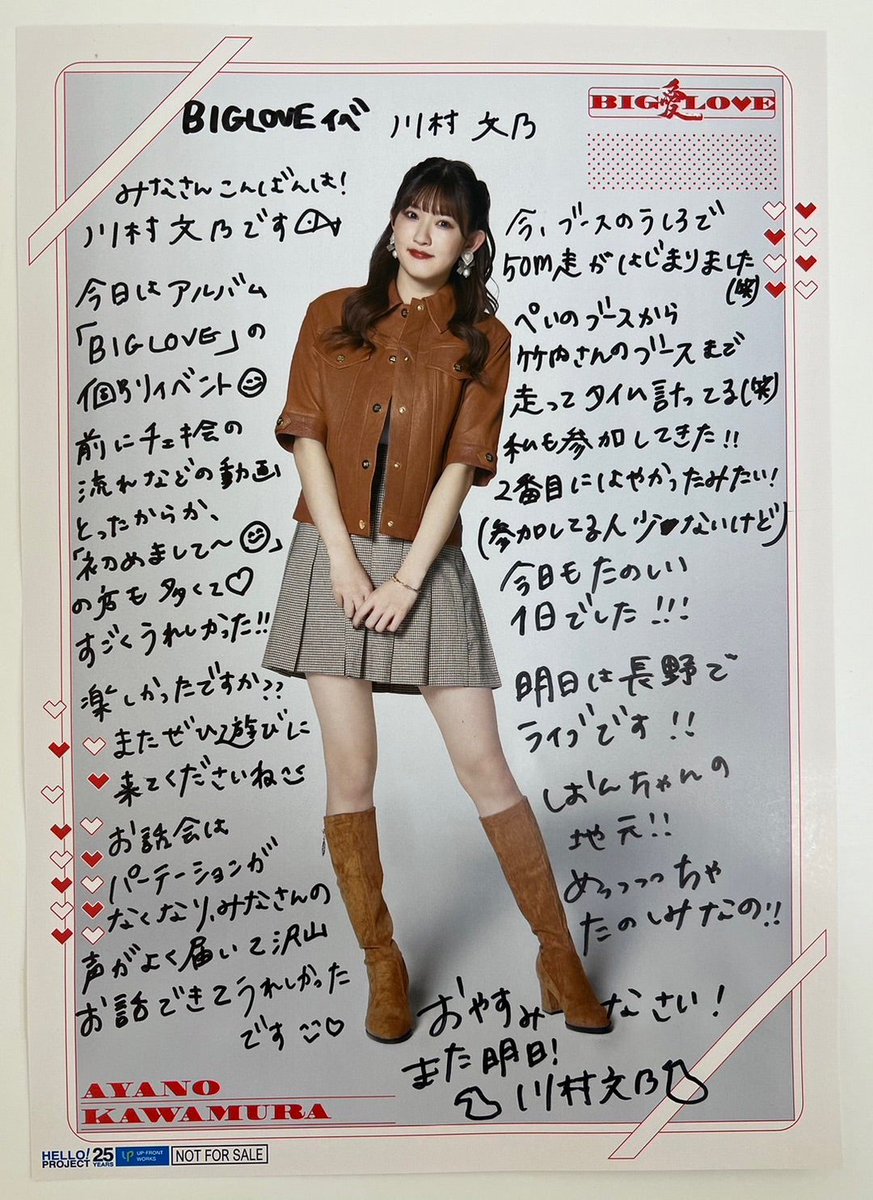 BIGLOVEイベ 川村 文乃
BIG愛LOVE
みなさんこんばんは!
川村文乃です
今日はアルバム
「BIGLOVE」の
個別イベント
前にチェキ会の
流れなどの動画
とったからか、
「初めまして〜」
の方も多くて♡
すごくうれしかった!!
楽しかったですか??
またぜひ遊びに
来てくださいね
お話会は
パーテーションが
なくなり、みなさんの
声がよく届いて沢山
お話できてうれしかった
です♡
今、ブースのうしろで
50m走がはじまりました
(笑)
ぺいのブースから
竹内さんのブースまで
走ってタイム計ってる(笑)
私も参加してきた!!
2番目にはやかったみたい!
(参加してる人少ないけど)
今日もたのしい
1日でした!!!
明日は長野で
ライブです!!
しおんちゃんの
地元!!
めっっっっちゃ
たのしみなの!!
おやすみなさい!
また明日!
川村文乃
AYANO
KAWAMURA
HELLO! PROJECT 25 YEARS UP-FRONT WORKS NOT FOR SALE